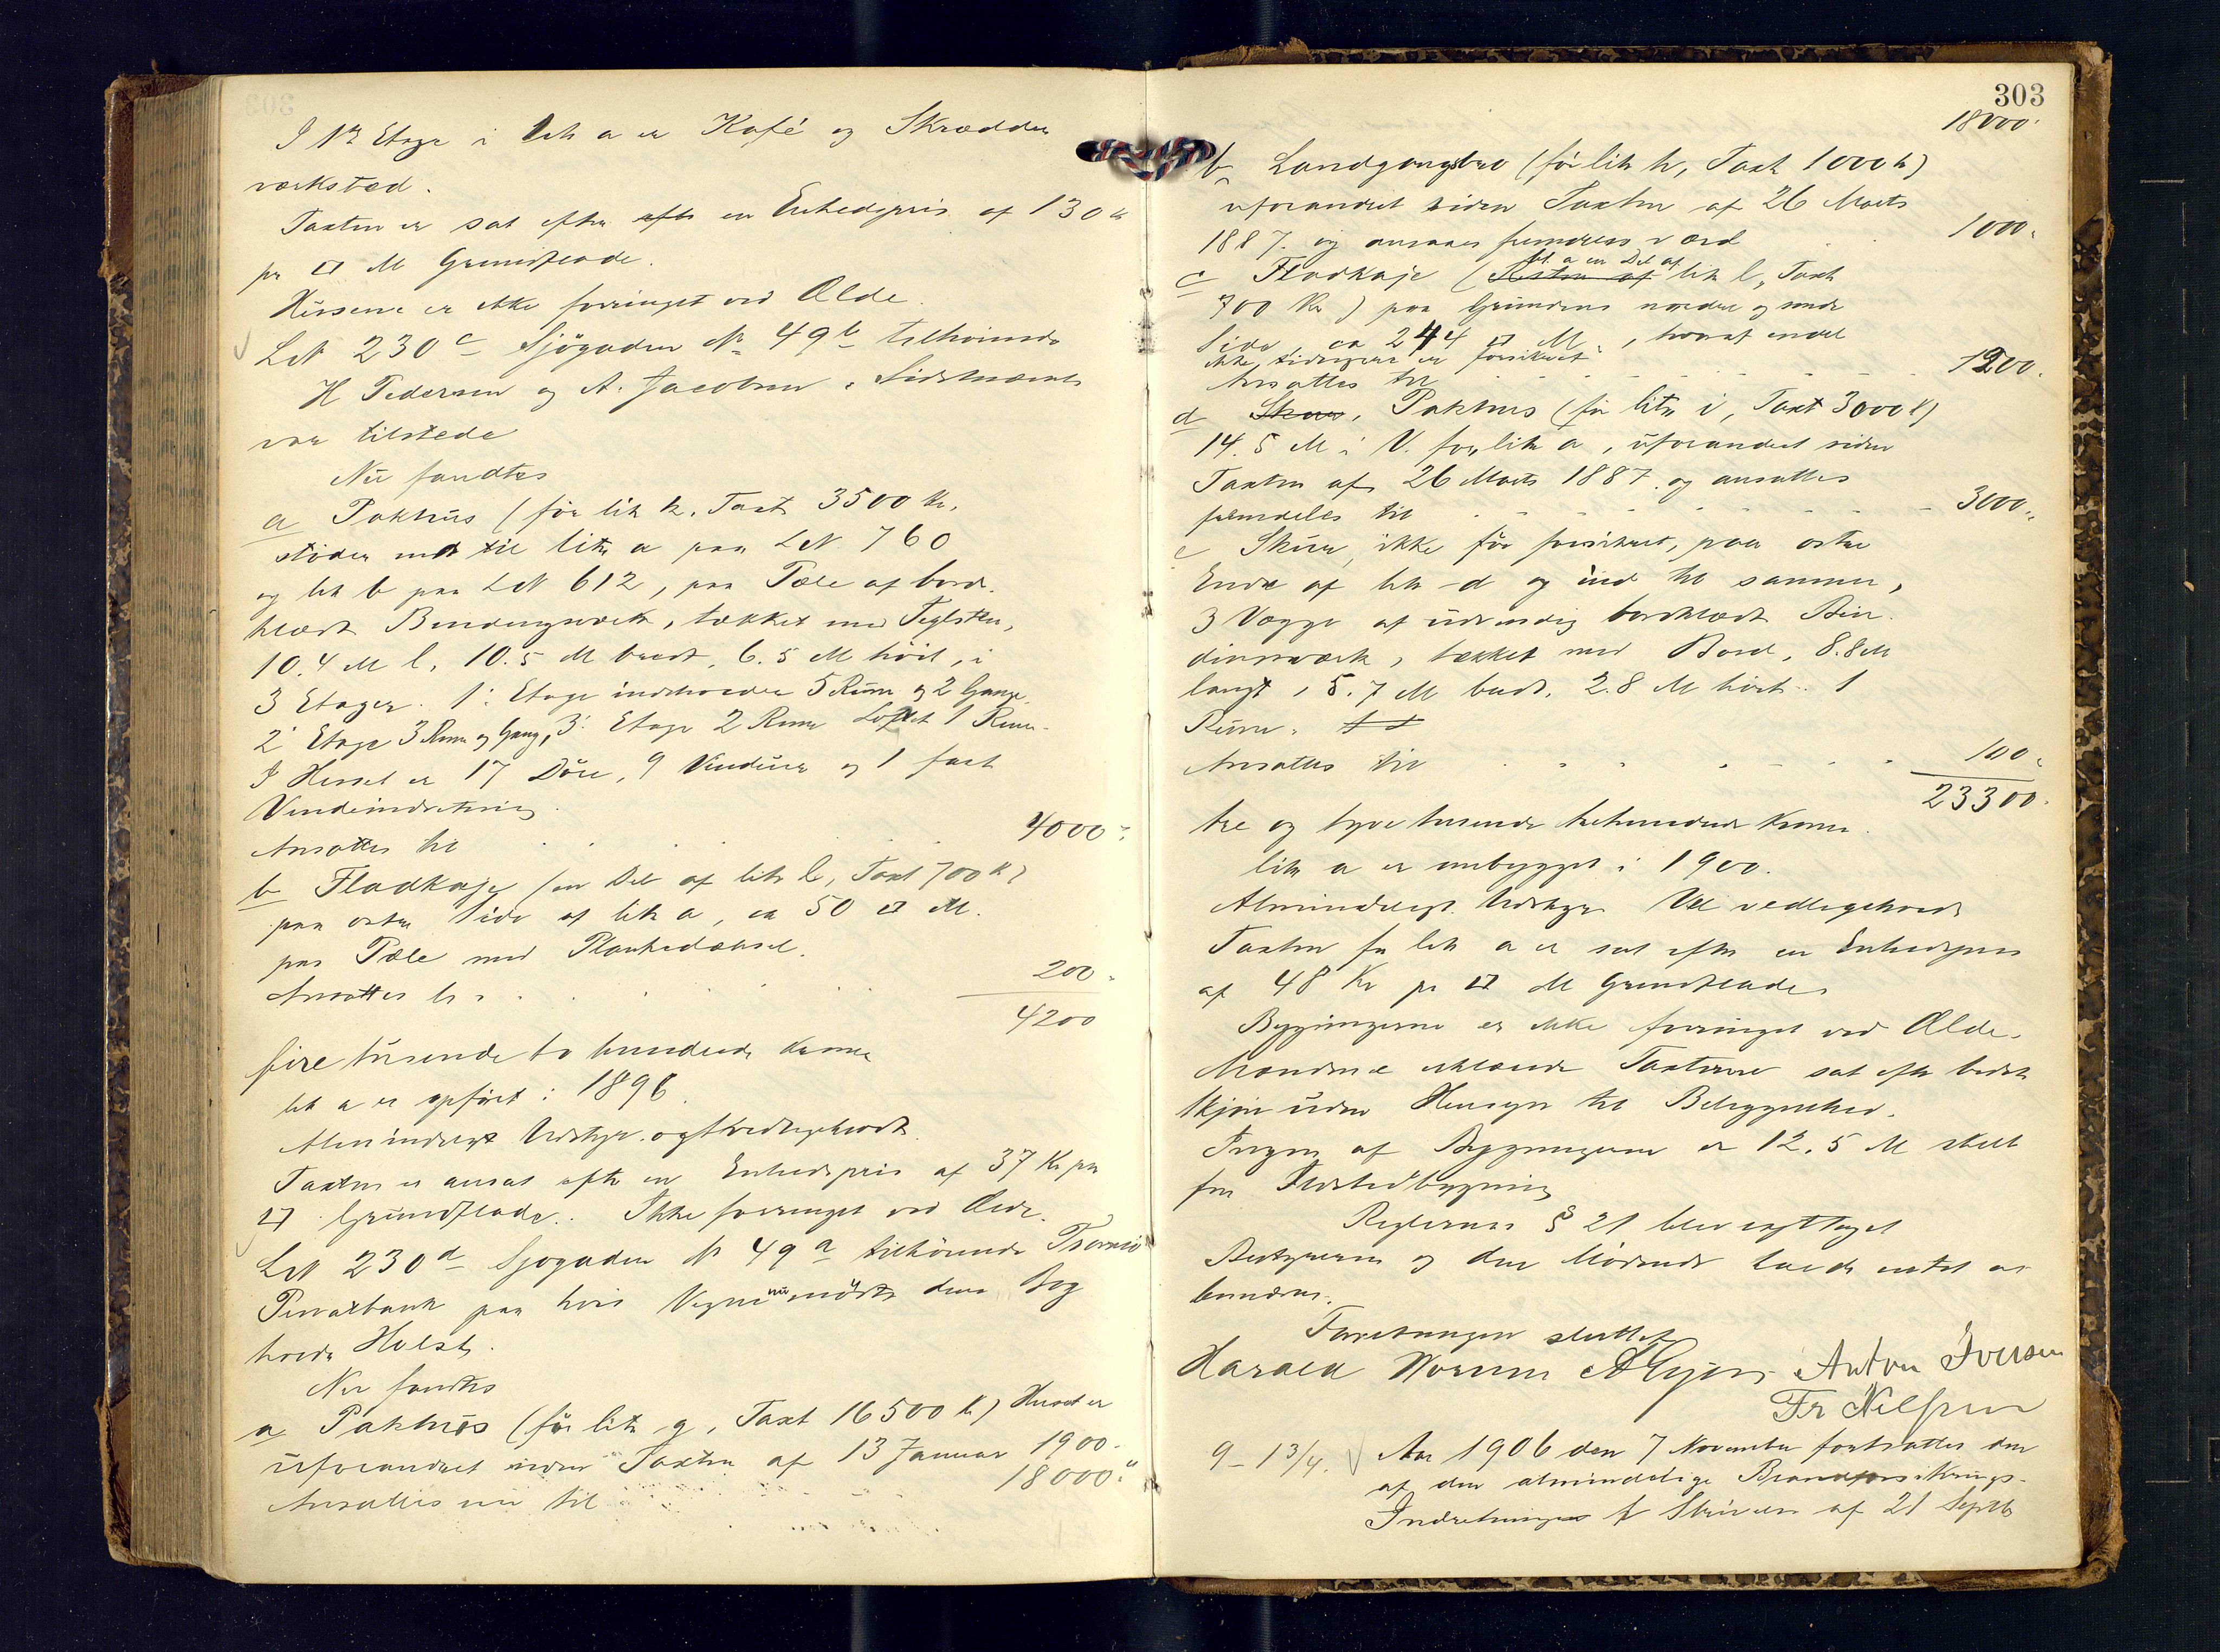 I 1ste Etage i Litr a er Kafé og Skrædder
verksted.
Taxten er sat efter efter en Enhedspris af 130 kr
pr □ M Grundflade.
Husene er ikke forringet ved Ælde.
LN 230 c Sjøgaden No 49b tilhørende
H Pedersen og A. Jacobsen. Sidstnævnte
var tilstede
Nu fandtes
a Pakhus (før litr k. Taxt 3500 Kr.
støder med til litr a paa LN 760
og litr b paa LN 612, paa Pæle af bord-
klædt Bindingsværk, tækket med Teglsten,
10.4 M l. 10.5 M bredt, 6.5 M høit, i
3 Etager. 1: Etage indeholder 5 Rum og 2 Gange
2: Etage 3 Rum og Gang, 3: Etage 2 Rum Loftet 1 Rum.
I Huset er 17 Døre, 9 Vinduer og 1 fast
Vindeindretning.
Ansattes til 4000.
b Fladkaje (en Del af litr l, Taxt 700 Kr)
paa østre Side af litr a, ca 50 □ M.
paa Pæle med Plankedæksel.
Ansattes til 200.
4200
fire tusende to hundrede Kroner
litr a er opført i 1896.
Almindeligt Udstyr. og vedligeholdt.
Taxten er ansat efter en Enhedspris af 37 Kr pr
□ Grundflade. Ikke forringet ved Ælde.
LN 230 d Sjøgaden No 49 a tilhørende Tromsø
Privatbank paa hvis Vegne nu mødte dens Bog
holder Holst.
Nu fandtes
a Pakhus (før litr g, Taxt 16500 kr) Huset er
uforandret siden Taxten af 13 Januar 1900.
Ansattes nu til 18000.
303
18000.
b Landgangsbro (før litr h, Taxt 1000 kr)
uforandret siden Taxten af 26 Marts
1887. og ansaaes fremdeles værd 1000.
bl. a en Del af
c Fladkaje (Resten af litr l, Taxt
700 Kr) paa Grundens nordre og søndre
Side, ca 244 □ M., hvoraf endel
ikke tidligere er forsikret
Ansattes til 1200.
d Skuur, Pakhus (før litr i, Taxt 3000 kr)
14.5 M i V. for litr a, uforandret siden
Taxten af 26 Marts 1887. og ansattes
fremdeles til 3000.
e Skuur, ikke før forsikret, paa østre
Ende af litr d og ind til samme,
3 Vægge af udvendig bordklædt Bin-
dingsværk, tækket med Bord, 8.8 M
langt, 5.7 M bredt. 2.8 M høit. 1
Rum.
Ansattes til 100.
23300.
tre og tyve tusende trehundrede Kroner.
litr a er ombygget i 1900.
Almindeligt Udstyr. Vel vedligeholdt
Taxten for litr a er sat efter en Enhedspris
af 48 Kr pr □ M Grundflade
Bygningerne er ikke forringet ved Ælde.
Mændene erklærede Taxterne sat efter bedste
Skjøn uden Hensyn til Beliggenhed.
Ingen af Bygningerne er 12.5 M skilt
fra Ildstedbygning
Reglernes § 21 blev iagttaget
Bestyreren og den Mødende havde intet at
bemærke.
Forretningen sluttet
Harald Norum Anton Iversen
Fr Nilssen
9 - 13/4. Aar 1906 den 7 November fortsattes den
af den almindelige Brandforsikrings-
Indretning i Skrivelse af 21 Septbr